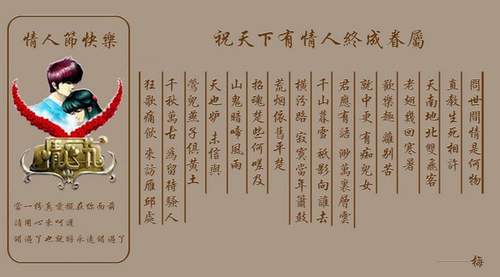 情人節快樂
當一份真愛擺在你面前
請用心來呵護
錯過丫也就將永遠錯過丫
祝天下有情人終成眷屬
問世間情是何物
直教生死相許
天南地北雙飛客
老翅幾回寒暑
歡樂趣 離別苦
就中更有痴兒女
君應有語 渺萬裏層雲
千山暮雪 祇影向誰去
橫汾路 寂寞當年簫鼓
荒烟依舊平楚
招魂楚些何嗟及
山鬼暗啼風雨
天也妒 未信與
鶯兒燕子俱黃土
千秋萬古 為留待騷人
狂歌痛飲 來訪雁邱處
——梅